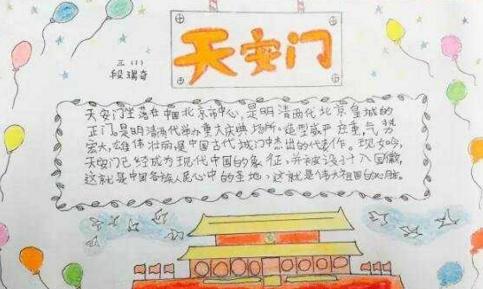 天安门
三(1)
段瑞奇
天安门坐落在中国北京市中心,是明清两代北京皇城的
正门,是明清两代举办重大庆典场所。造型威严庄重,气势
宏大,雄伟壮丽,是中国古代城门中杰出的代表作。现如今,
天安门已经成为现代中国的象征,并被设计入国徽,
这就是中国各族人民心中的圣地,这就是伟大祖国的心脏。